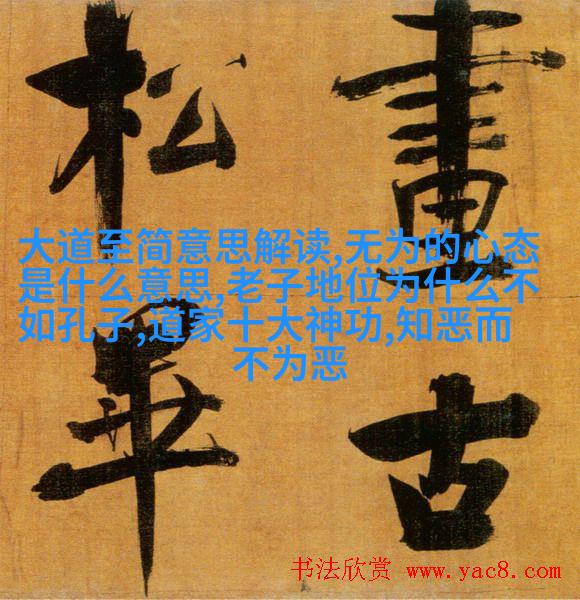 畫古
松畢
大道至简意思解读,无为的心态
是什么意思,老子地位为什么不
如孔子,道家十大神功,知恶而
不为恶
书法欣赏 www.yac8.com